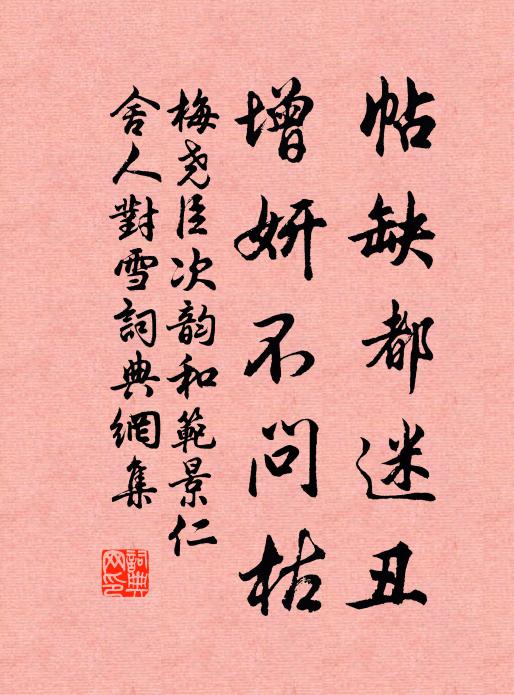 帖缺都迷丑
增妍不问枯
梅尧臣次韵和範景仁
舍人對雪詞典網集
詞典网印